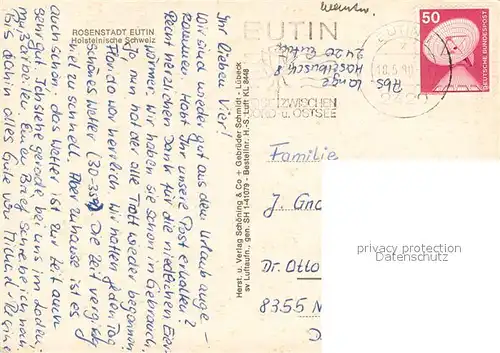 ROSENSTADT EUTIN
Holsteinische Schweiz
Ihr lieben Vier!
Wir sind wieder gut aus dem Urlaub ange-
kommen. Habt Ihr unsere Post erhalten?
Recht herzlichen Dank für die niedlichen Eier-
wärmer. Wir haben sie schon im Gebrauch.
Ja, nun hat der alte Trott wieder begonnen.
war herrlich. Wir hatten jeden Tag
schönes Wetter (30-35°) Die Zeit verging
viel zu schnell. Aber zuhause ist es ja
auch schön, das Wetter ist zur Zeit auch
sehr gut. Ich stehe gerade bei uns im Laden,
muß arbeiten. Einen Brief schreibe ich noch.
Bis dahin alles Gute von Michael + Regine
Herst. u. Verlag Schöning & Co + Gebrüder Schmidt - Lübeck
sv Luftaufn., gen. SH 1-41079 - Bestellnr. H.-S. Luft KL 8448
EUTIN
ZWISCHEN
NORD- u. OSTSEE
Abs
Lange
2420 Eutin
EUTIN
18.5.90
50
DEUTSCHE BUNDESPOST
Familie
J. Gnc
Dr. Otto
8355 N
privacy protection
Datenschutz